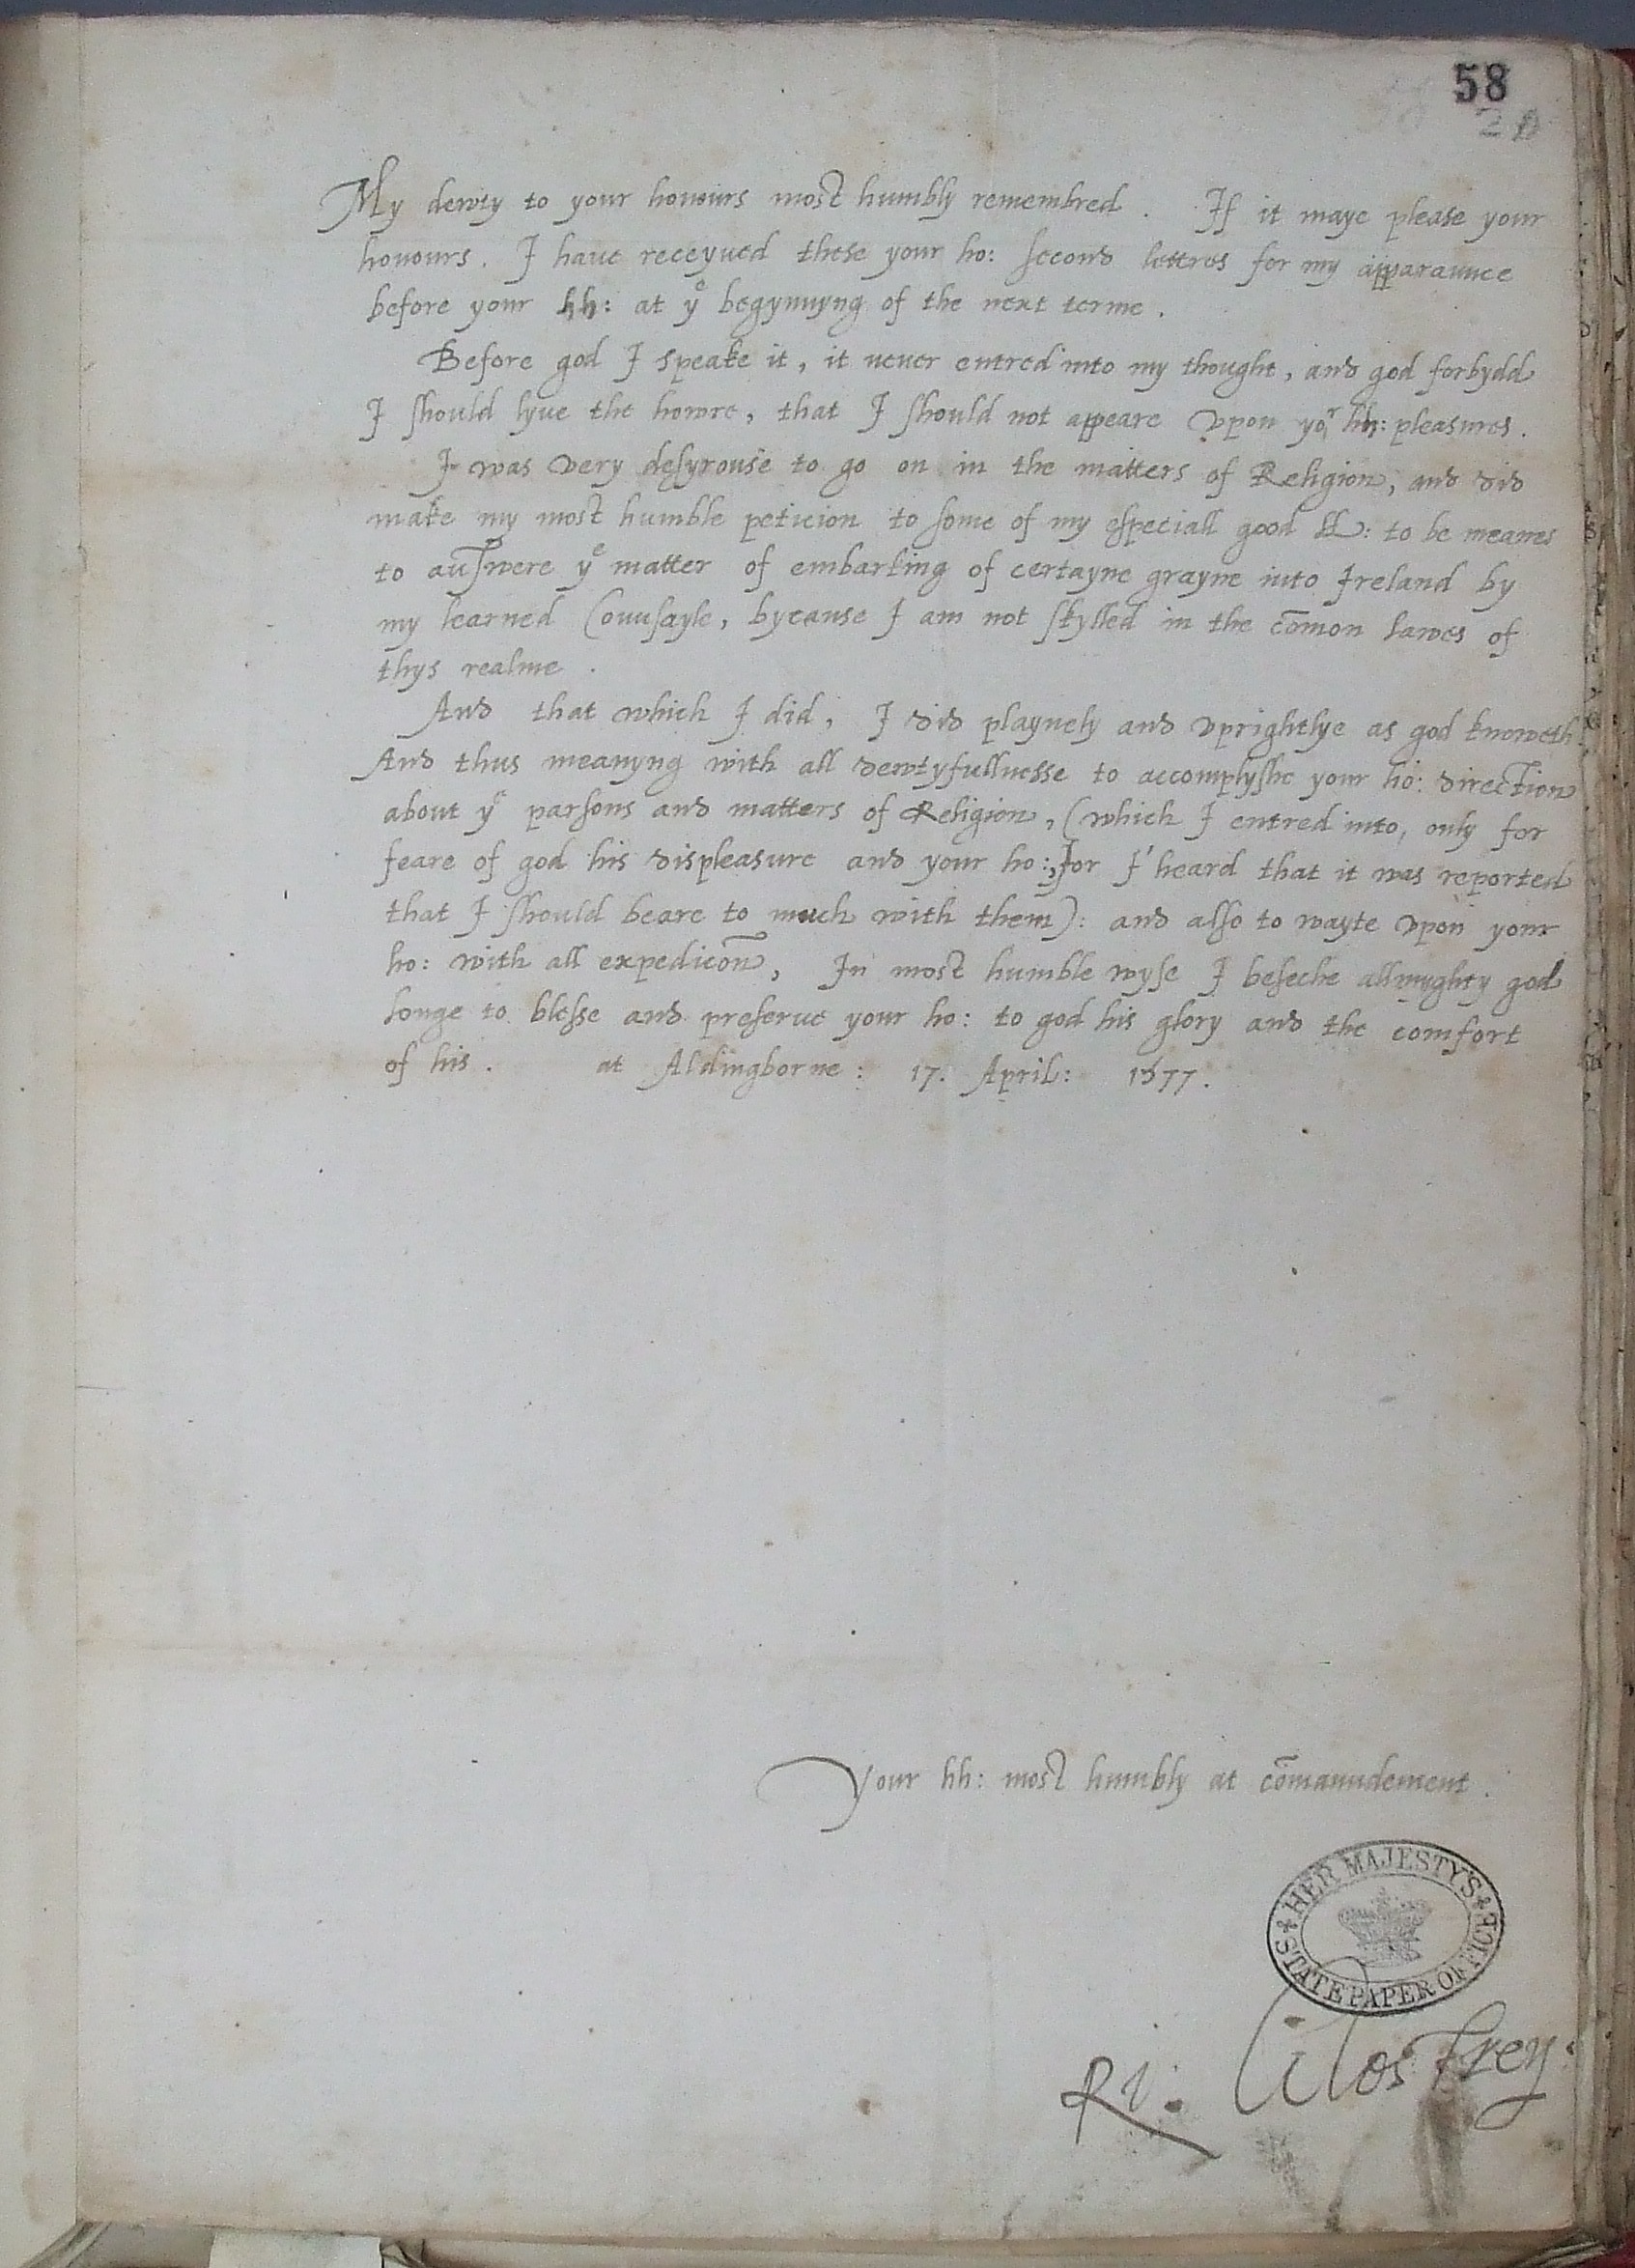 58
My dewty to your honours most humbly remembred. If it maye please your
honours. I haue receyued these your ho: second lettres for my apparaunce
before your hh: at yᵉ begynnyng of the next terme.
Before god I speake it, it neuer entred into my thought, and god forbydd
I should lyue the howre, that I should not appeare vpon yoʳ hh: pleasures.
I was very desyrouse to go on in the matters of Religion, and did
make my most humble peticion to some of my especiall good LL: to be meanes
to aunswere yᵉ matter of embarking of certayne grayne into Ireland by
my learned Counsayle, bycause I am not skylled in the com̄on lawes of
thys realme.
And that which I did, I did playnely and vprightlye as god knoweth
And thus meanyng with all dewtyfullnesse to accomplyshe your ho: direction
about yᵉ parsons and matters of Religion, (which I entred into, only for
feare of god his displeasure and your ho:, for I heard that it was reported
that I should beare to much with them): and also to wayte vpon your
ho: with all expedicōn, In most humble wyse I beseche allmyghty god
longe to blesse and preserue your ho: to god his glory and the comfort
of his. at Aldingborne: 17. April: 1577.
Your hh: most humbly at com̄aundement.
HER MAJESTY'S STATE PAPER OFFICE
Ri: Cicestren: